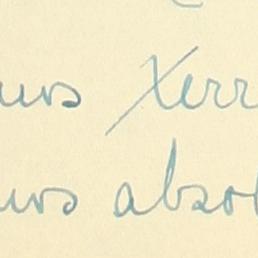 uus Xerr
uus absol